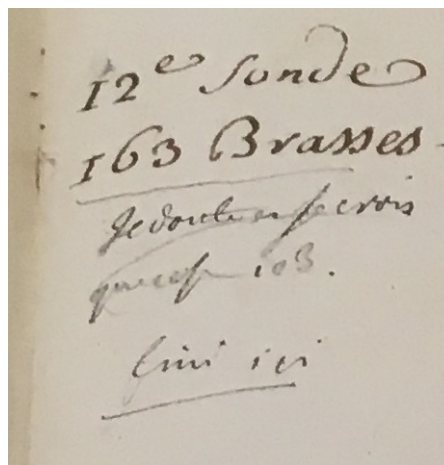 12e Sonde
163 Brasses
Je doute et je crois
que c'est 103.
fini ici